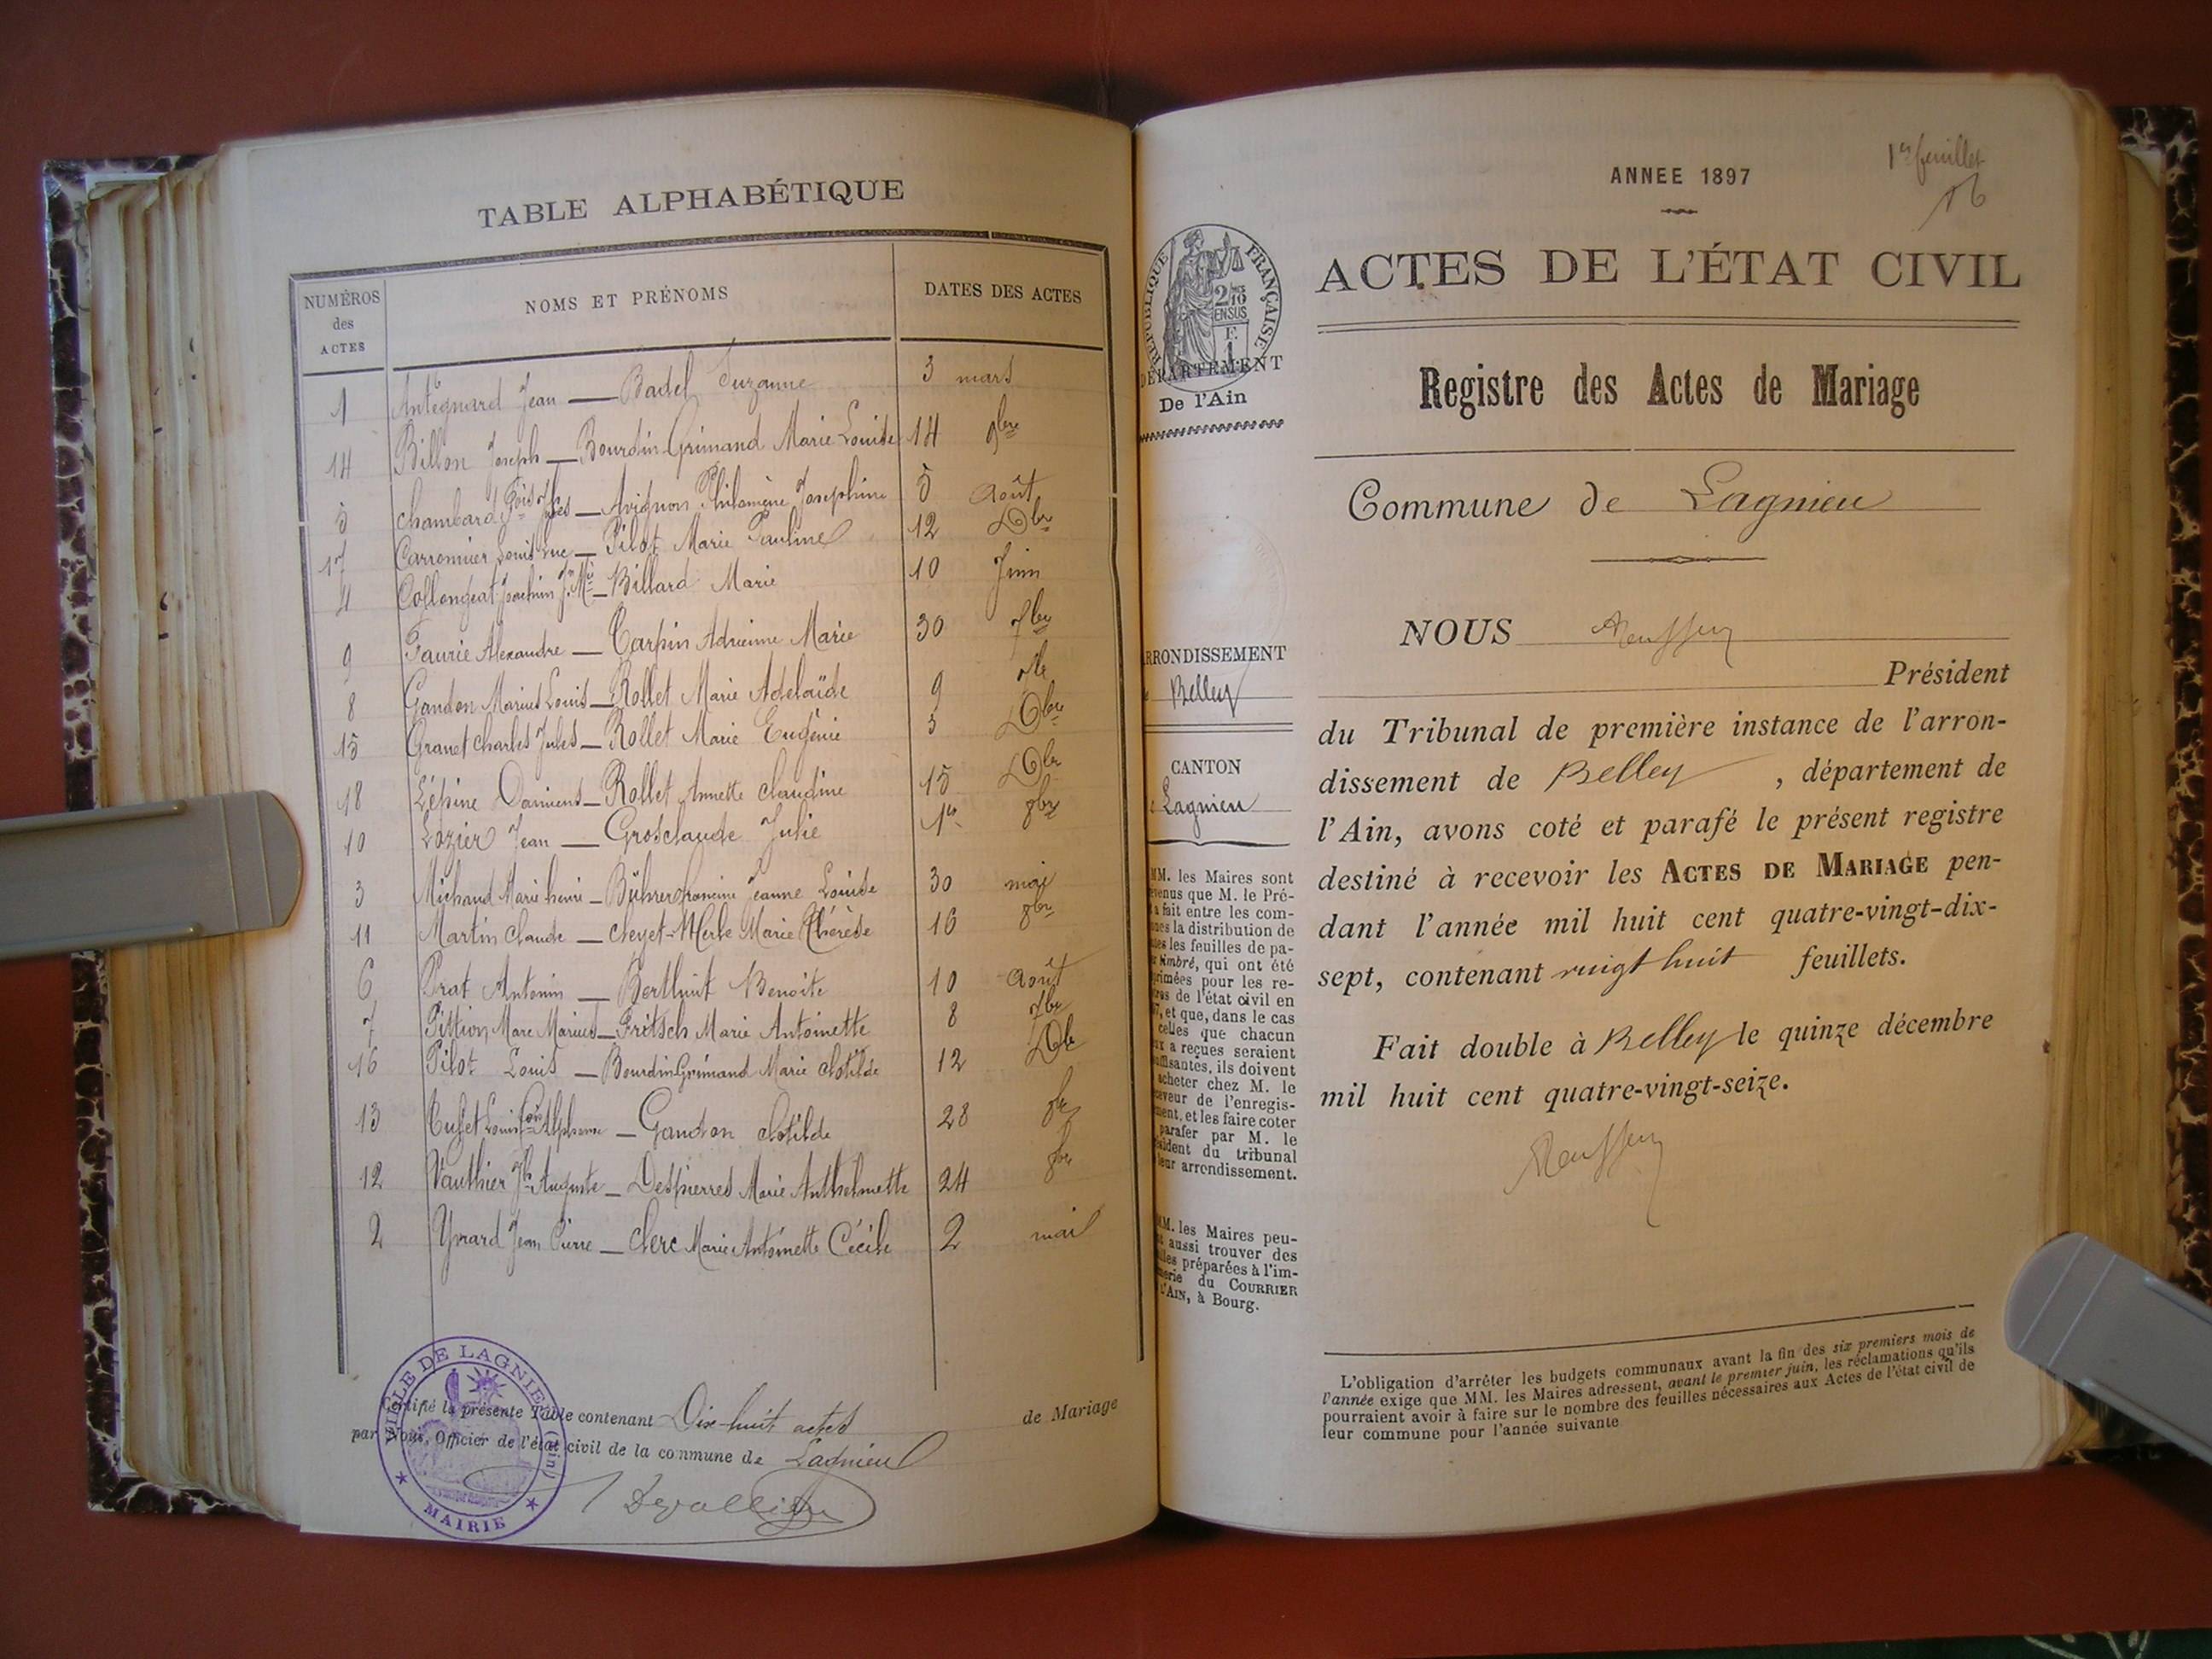 TABLE ALPHABÉTIQUE
NUMÉROS des ACTES
NOMS ET PRÉNOMS
DATES DES ACTES
1 Antégnard Jean — Badel Suzanne 3 mars
14 Billon Joseph — Bourdin-Grimand Marie Louise 14 9bre
5 Chambard Fois Jules — Avignon Philomène Josephine 5 Août
17 Carronnier Louis Luc — Pilot Marie Pauline 12 Xbre
4 Collongeat Joachim Jn Mie — Billard Marie 10 Juin
9 Faurie Alexandre — Carpin Adrienne Marie 30 7bre
8 Gandon Marius Louis — Rollet Marie Adelaïde 9
15 Granet Charles Jules — Rollet Marie Eugénie 5 Xbre
18 Lépine Damiens — Rollet Annette Claudine 15 Xbre
10 Lozier Jean — Grosclaude Julie 1er 8bre
3 Michaud Marie henri — Bührer francine Jeanne Louise 30 mai
11 Martin Claude — Cheyet-Merle Marie Thérèse 16 8bre
6 Prat Antonin — Berthuit Benoite 10 Août
7 Pittion Marc Marius — Fritsch Marie Antoinette 8 7bre
16 Pilot Louis — Bourdin Grimand Marie Clotilde 12 Xbre
13 Louis Alphonse — Gandon Clotilde 28 8bre
12 Vauthier Jh Auguste — Despierres Marie Anthelmette 24 8bre
2 Yvrard Jean Pierre — Clerc Marie Antoinette Cécile 2 mai
Certifié la présente Table contenant Dix-huit actes de Mariage
par Nous, Officier de l'état civil de la commune de Lagnieu
VILLE DE LAGNIEU (Ain)
★ MAIRIE ★
1er feuillet
ANNEE 1897
ACTES DE L'ÉTAT CIVIL
Registre des Actes de Mariage
Commune de Lagnieu
NOUS
Président
du Tribunal de première instance de l'arron-
dissement de Belley, département de
l'Ain, avons coté et parafé le présent registre
destiné à recevoir les ACTES DE MARIAGE pen-
dant l'année mil huit cent quatre-vingt-dix-
sept, contenant vingt huit feuillets.
Fait double à Belley le quinze décembre
mil huit cent quatre-vingt-seize.
L'obligation d'arrêter les budgets communaux avant la fin des six premiers mois de
l'année exige que MM. les Maires adressent, avant le premier juin, les réclamations qu'ils
pourraient avoir à faire sur le nombre des feuilles nécessaires aux Actes de l'état civil de
leur commune pour l'année suivante
RÉPUBLIQUE FRANÇAISE
2/10 EN SUS
F. 1
DÉPARTEMENT
De l'Ain
ARRONDISSEMENT
Belley
CANTON
Lagnieu
MM. les Maires sont
venus que M. le Pré-
a fait entre les com-
la distribution de
les feuilles de pa-
timbré, qui ont été
primées pour les re-
de l'état civil en
et que, dans le cas
celles que chacun
a reçues seraient
ils doivent
acheter chez M. le
ceveur de l'enregis-
ment, et les faire coter
parafer par M. le
sident du tribunal
leur arrondissement.
MM. les Maires peu-
aussi trouver des
préparées à l'im-
merie du COURRIER
L'AIN, à Bourg.